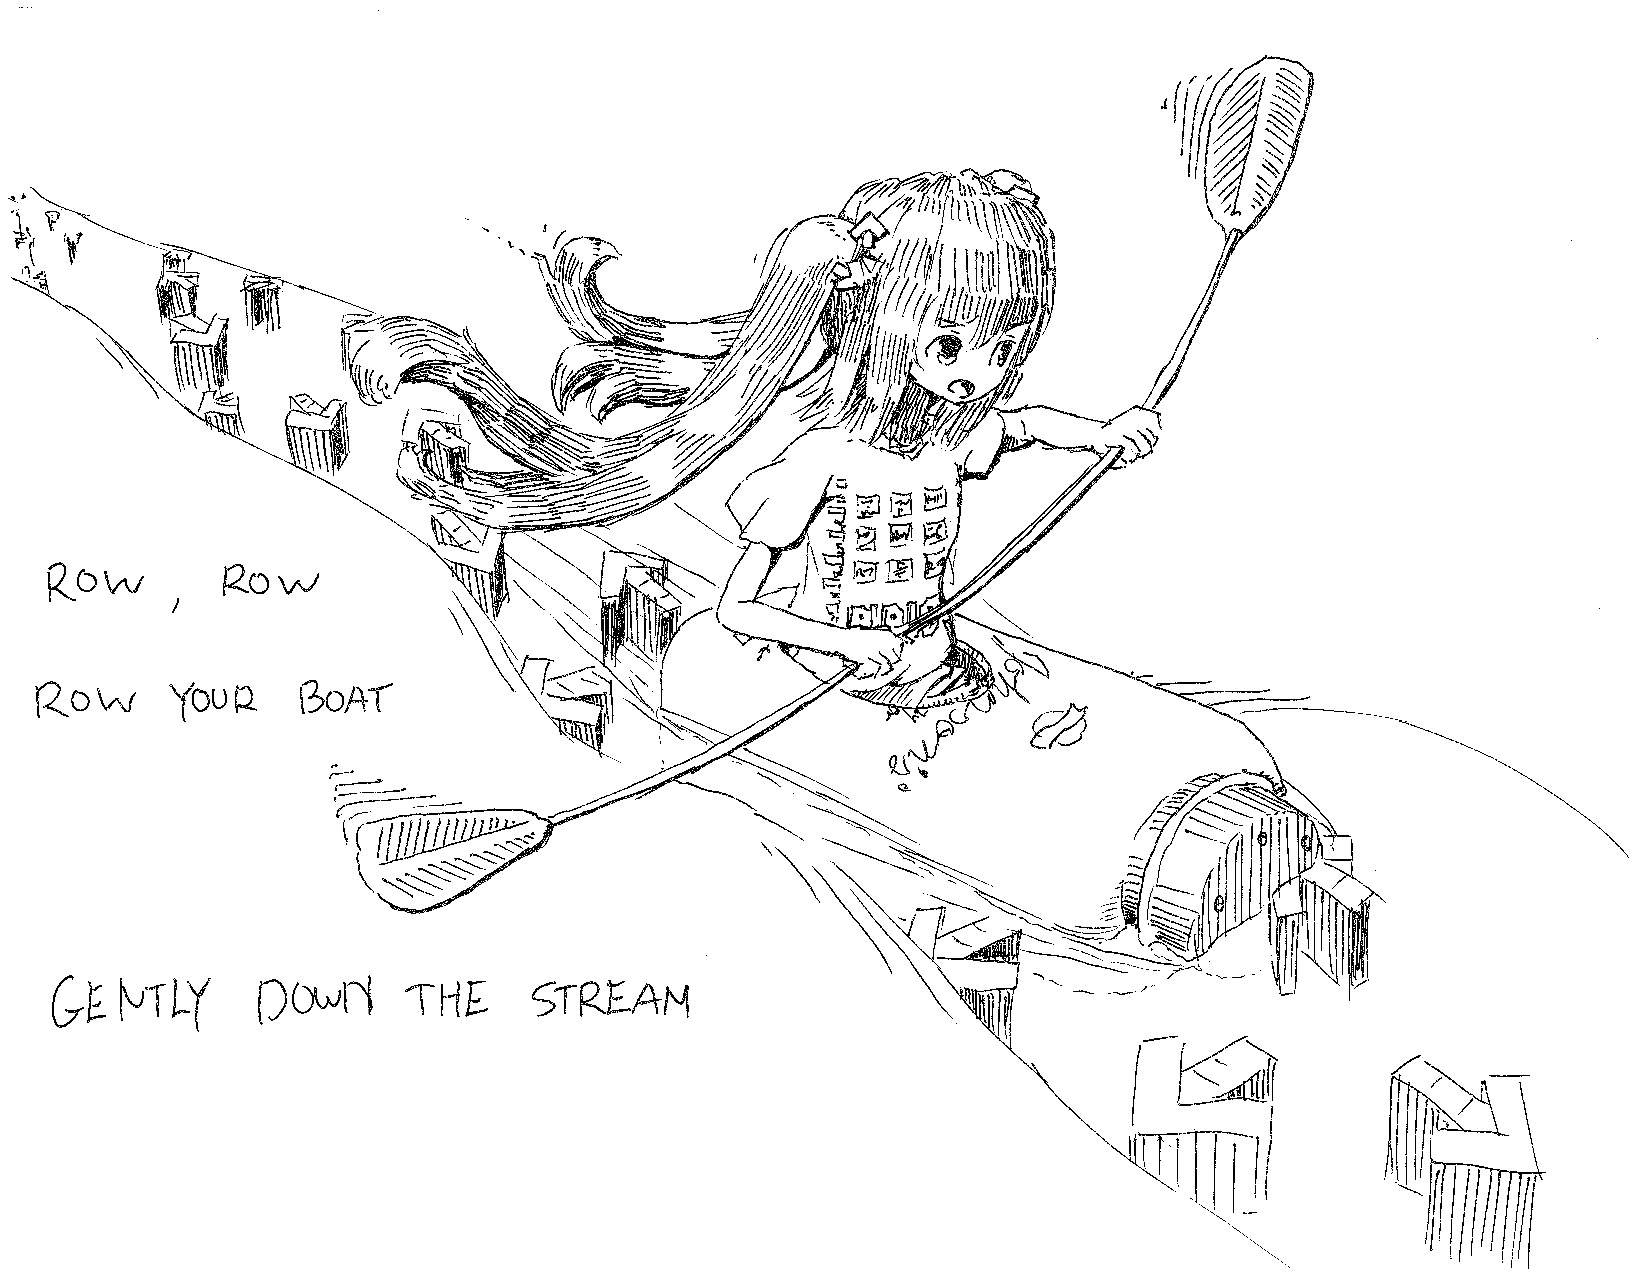 ROW, ROW
ROW YOUR BOAT
GENTLY DOWN THE STREAM